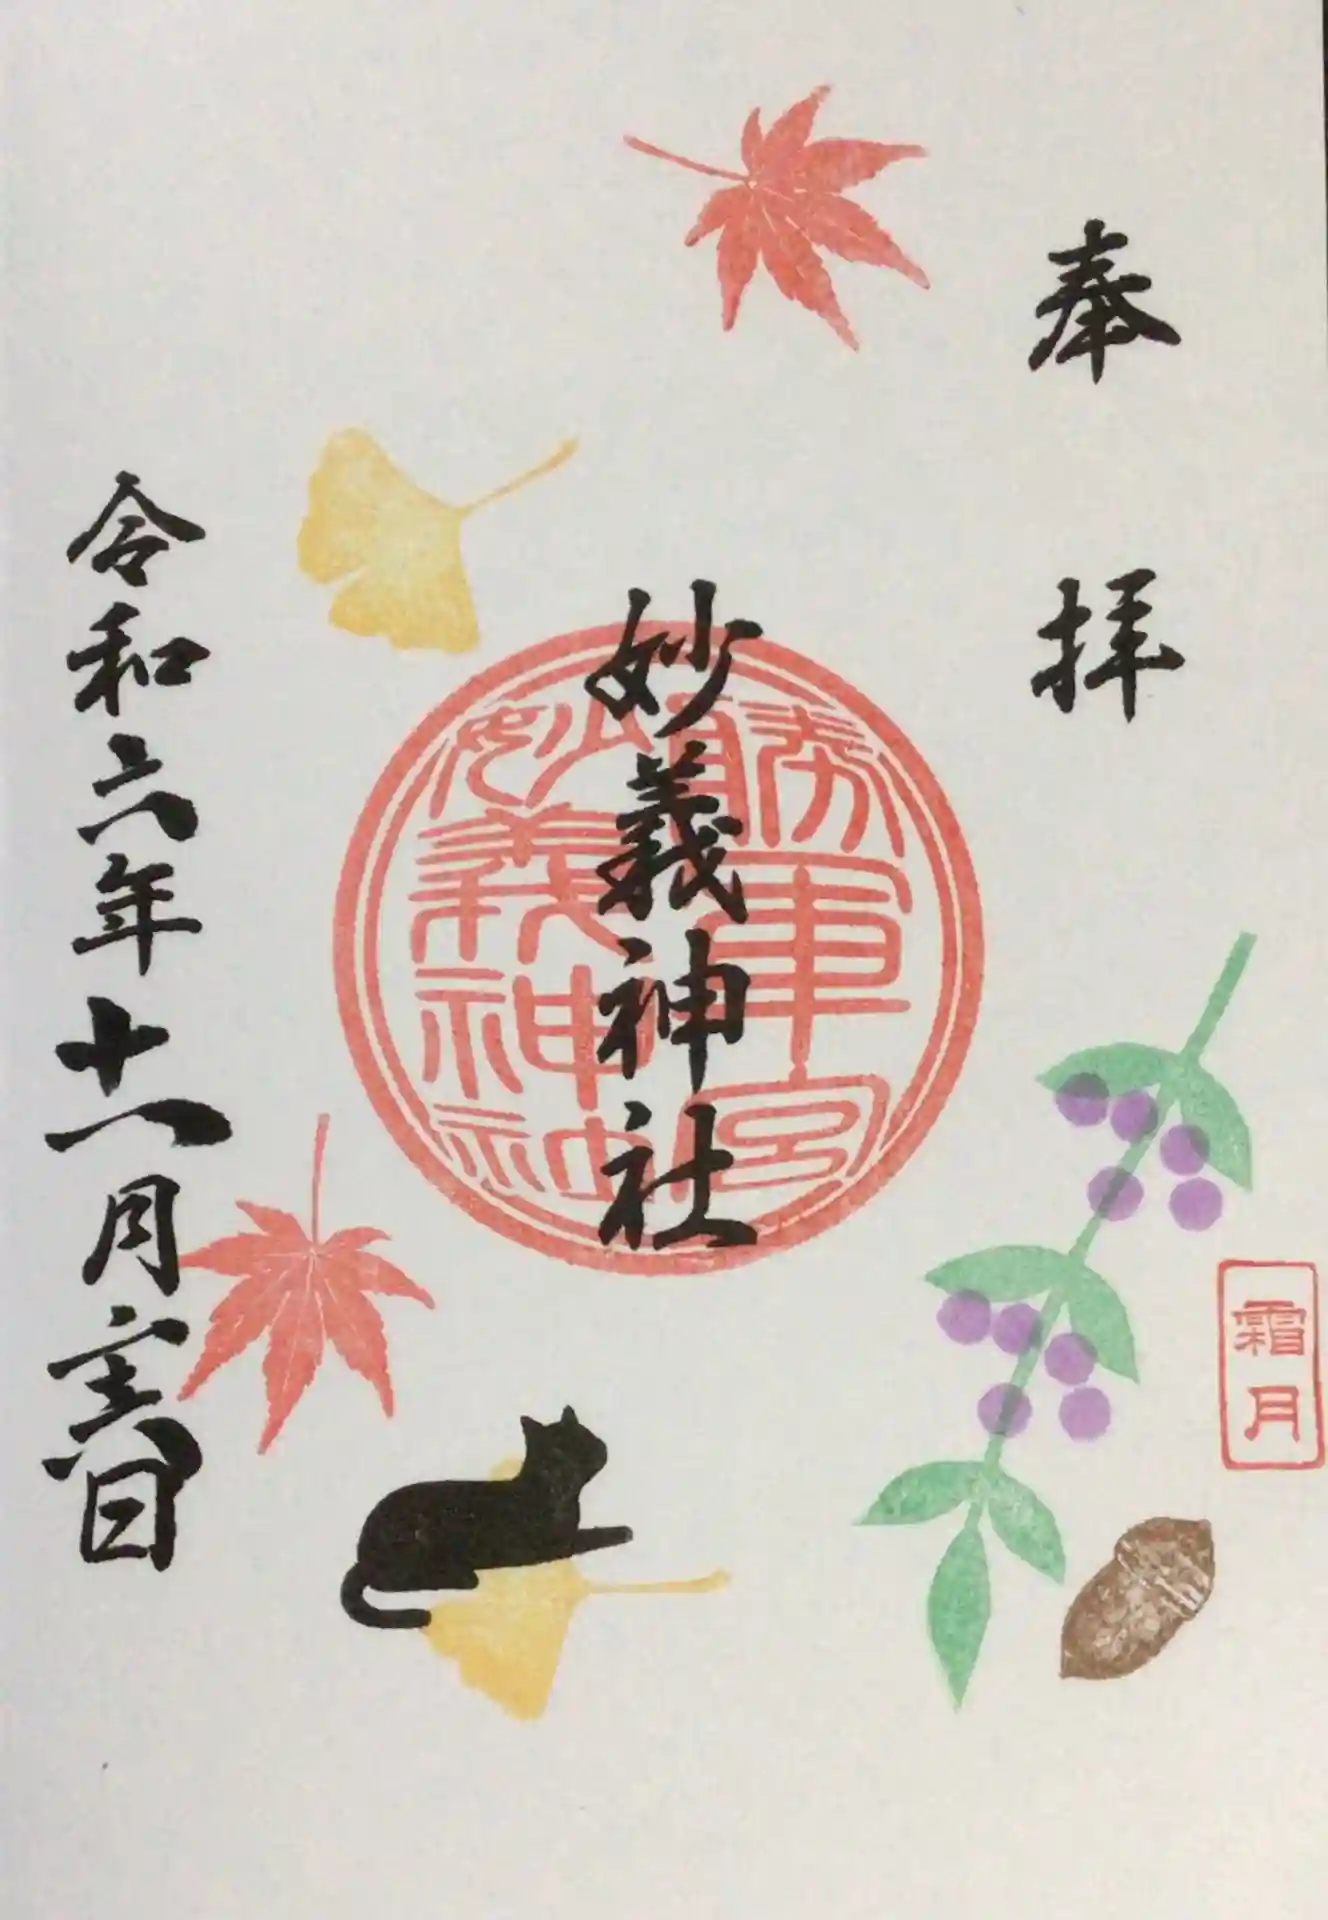 奉拝
妙義神社
勝軍宮
妙義神社
令和六年十一月日
霜月